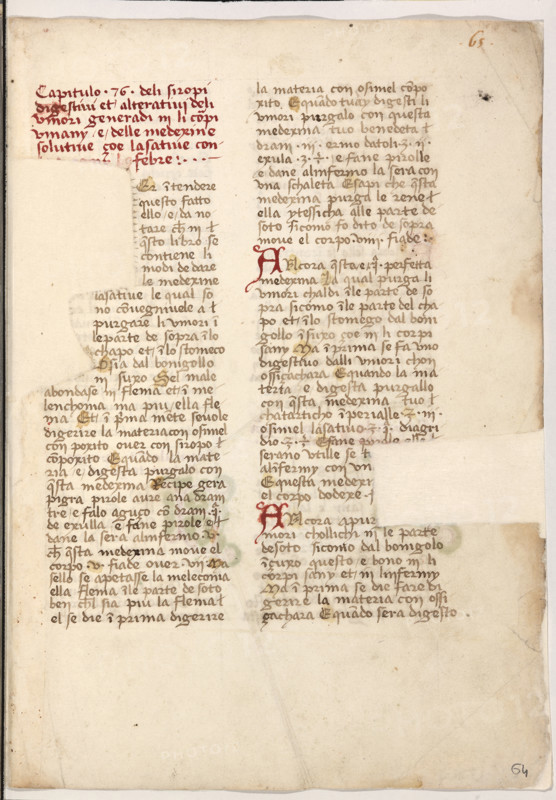 65
Capitulo · 76 · deli siropi
digestiui et alteratiui deli
vmori generadi in li corpi
vmany / e / delle medexine
solutiue çoe lasatiue con
febre : · · ·
Er ītendere
questo fatto
ello / e / da no
tare ch̄ in ł
q̄sto libro se
contiene li
modi de dare
le medexine
lasatiue le qual so
no cōuegniuele a ł
purgare li vmori ī
le parte de sopra ī lo
chapo et ī lo stomeco
Osia dal bonigollo
in suxo Sel male
abondase in flema et ī me
lenchoma ma piu / ella fle
ma Et ī p̄ma mete seuole
digerire la materia con osimel
con poxito ouer con siropo ł
cōpoxito Equādo la mate
ria e digesta purgalo con
q̄sta medexina Recipe gera
pigra pirole aure ana dram
tre e falo aguço cō dram
de exulla e fane pirole e ł
dane la sera alinfermo
ch̄ q̄sta medexina moue el
corpo v fiade ouer vii Ma
sello se apetasse la melconia
ella flema ī le parte de soto
ben chl sia piu la flema ł
el se die ī prima digerire
la materia con osimel cōpo
xito. Equādo tuay digesti li
vmori purgalo con questa
medexina tuo benedeta ł
dram · iii · ermo datoli ʒ · ii ·
exula · ʒ · e fane pirolle
e dane alinfermo la sera con
vna schaleta Esapi che q̄sta
medexina purga le rene ł
ella ytessicha alle parte de
soto sicomo fo dito de sopra
moue el corpo · viii · fiade :
Ancora q̄sta / e perfetta
medexina La qual purga li
vmori chaldi ī le parte de so
pra sicomo ī le parte del cha
po et ī lo stomego dal boni
gollo ī suxo çoe in li corpi
sany Ma ī prima se fa vno
digestiuo dalli vmori chon
ossicachara Equando la ma
teria e digesta purgallo
con q̄sta medexina tuo ł
chatarticho īperialle · ʒ · iii ·
osimel lasatiuo diagri
dio · ʒ · Efane
serano vtille se ł
alīfermy con vn
Equesta medexi
el corpo dodexe
Ancora apur
mori chollichi in le parte
desoto sicomo dal bonigolo
ī çuxo questo e bono in li
corpi sany et in linfermy
Ma ī prima se die fare di
gerire la materia con ossi
çachara Equādo sera digesto
64